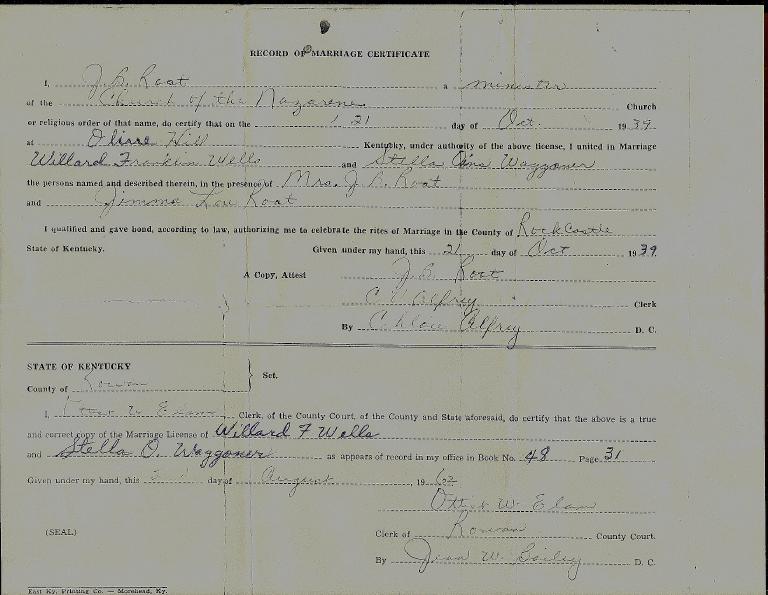 RECORD OF MARRIAGE CERTIFICATE
I, J. B. Root a minister
of the Church of the Nazarene Church
or religious order of that name, do certify that on the 21 day of Oct. 1939
at Olive Hill Kentucky, under authority of the above license, I united in Marriage
Willard Franklin Wells and Stella Waggoner
the persons named and described therein, in the presence of Mrs. J. B. Root
and Jimma Lou Root
I qualified and gave bond, according to law, authorizing me to celebrate the rites of Marriage in the County of RockCastle
State of Kentucky. Given under my hand, this 21 day of Oct 1939
A Copy, Attest J. B. Root
C. V. Alfrey Clerk
By Chloe Alfrey D. C.
STATE OF KENTUCKY
County of Rowan } Sct.
I, Ottis W. Elam Clerk, of the County Court, of the County and State aforesaid, do certify that the above is a true
and correct copy of the Marriage License of Willard F Wells
and Stella O. Waggoner as appears of record in my office in Book No. 48 Page 31
Given under my hand, this day of August 1962
Ottis W. Elam
(SEAL) Clerk of Rowan County Court.
By Jean W. Bailey D. C.
East Ky. Printing Co. — Morehead, Ky.